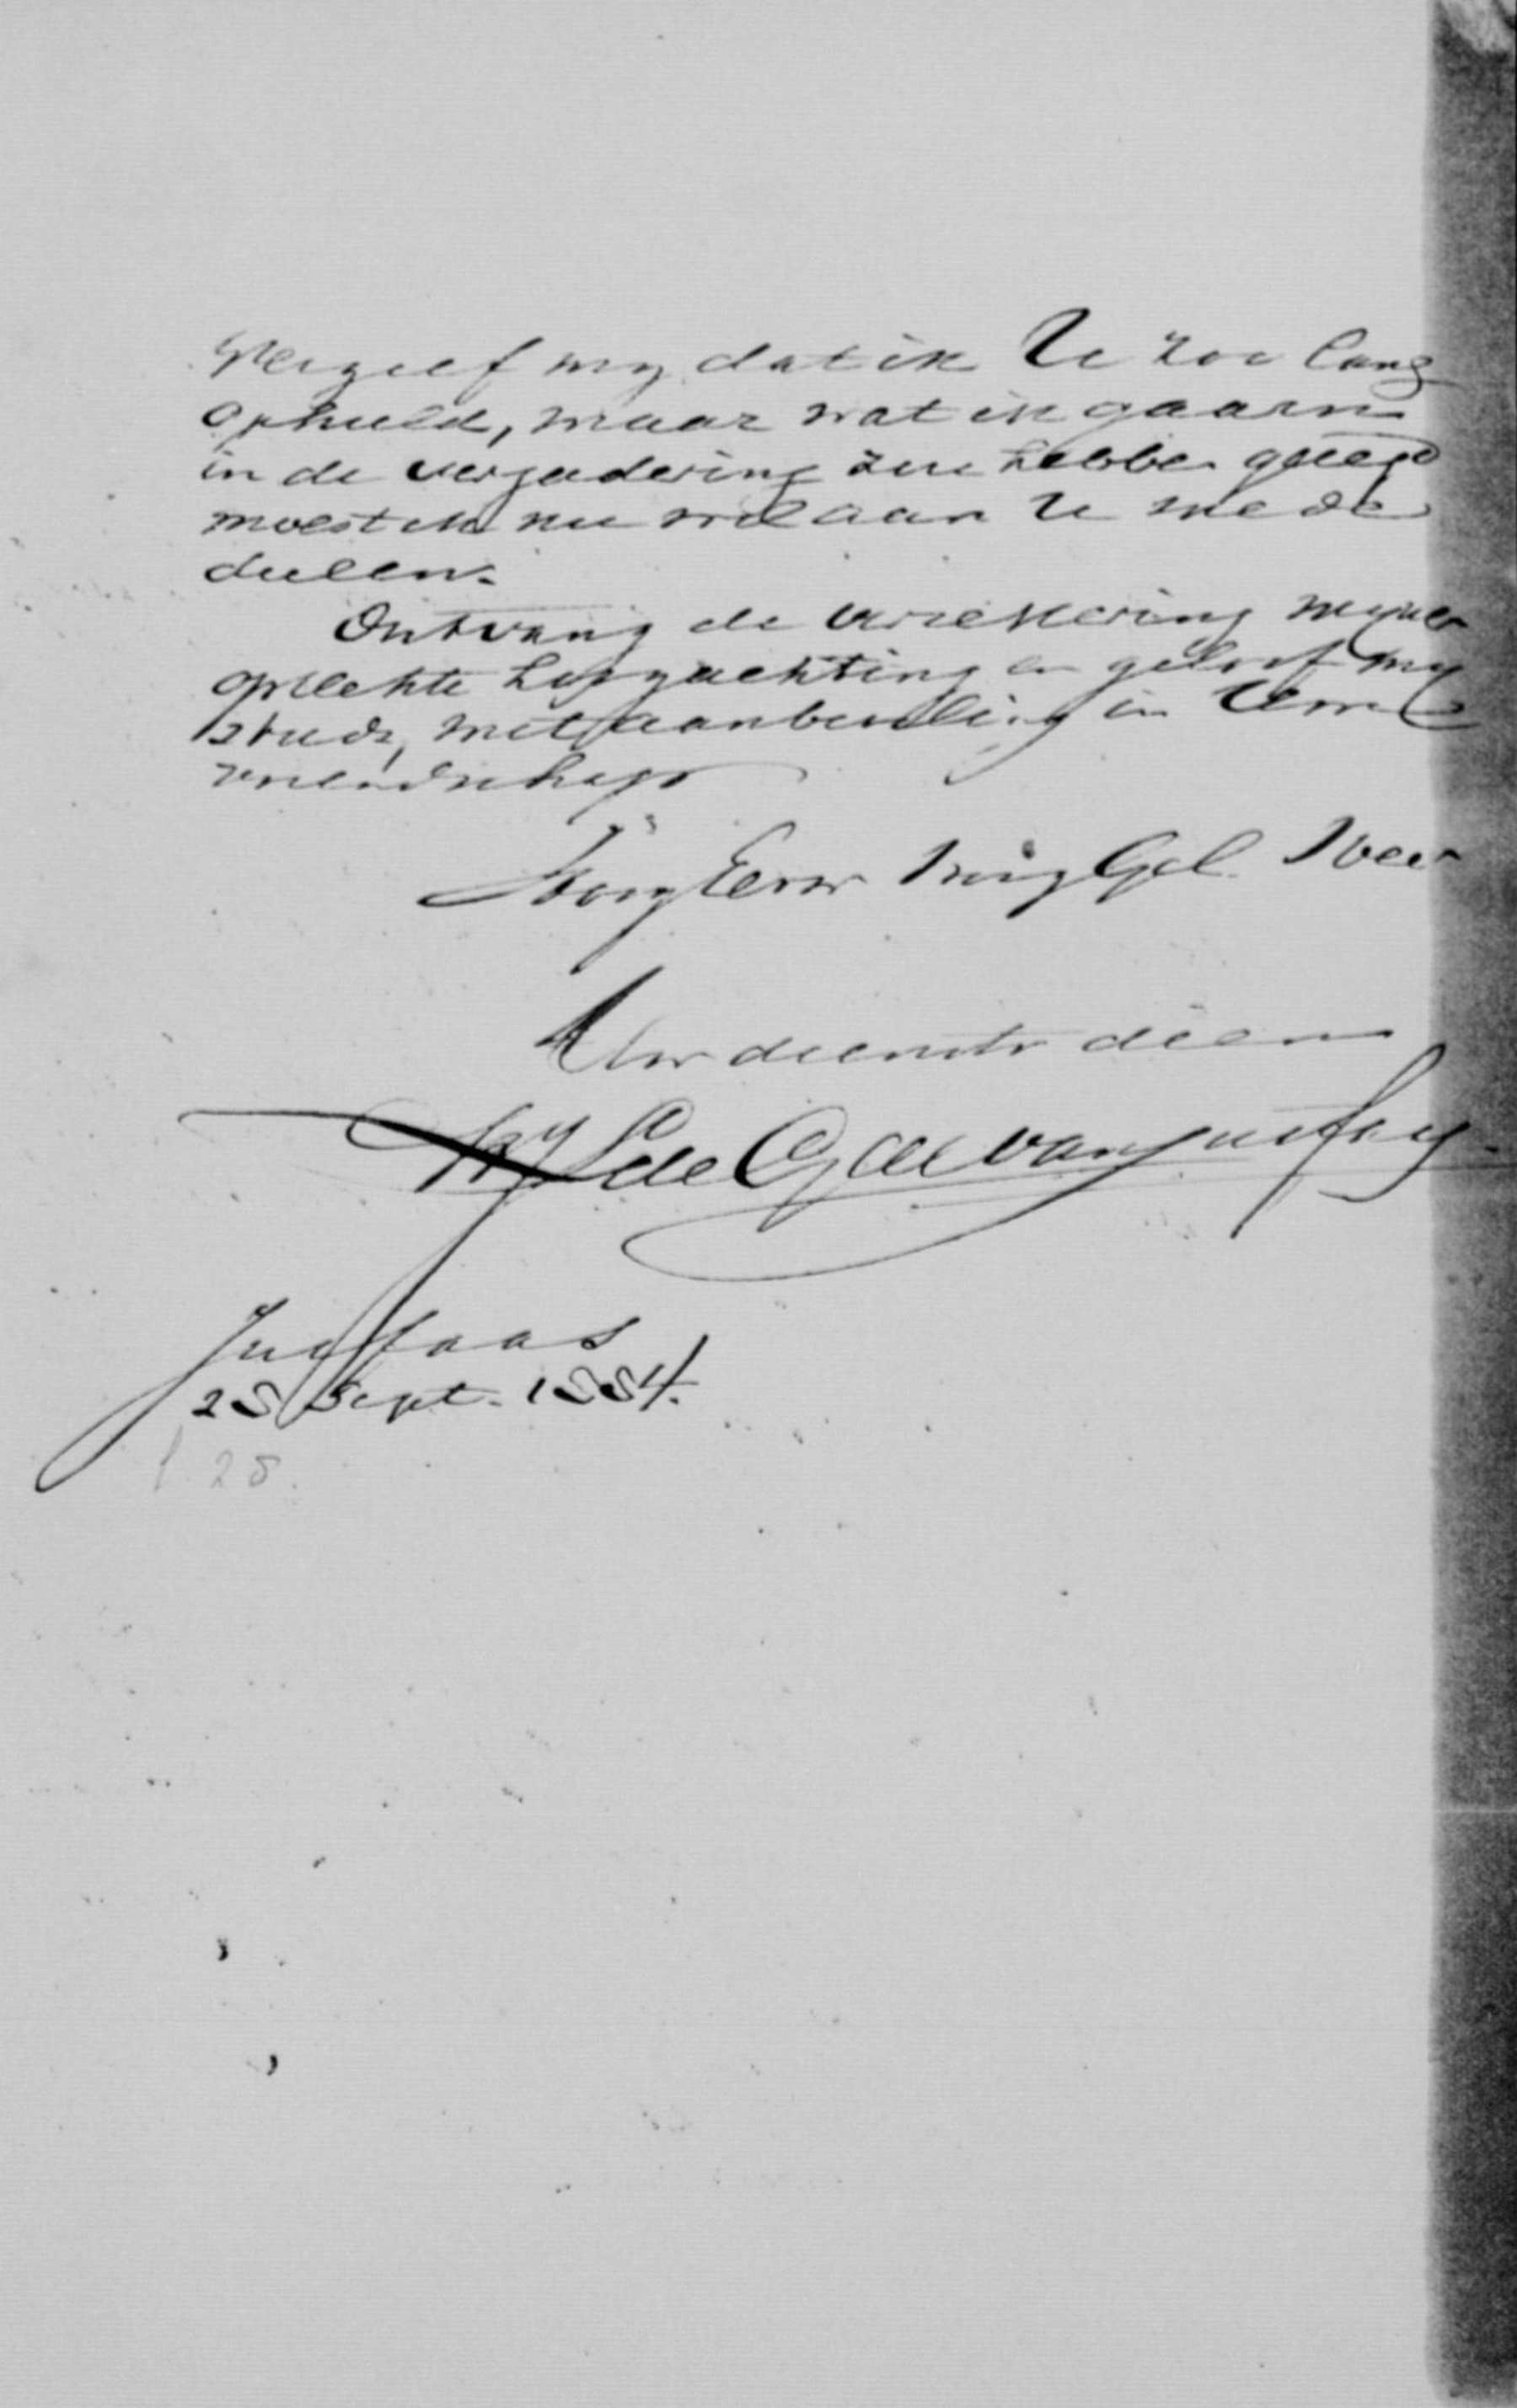 Vergeef my dat ik U zoo lang
ophield, maar wat ik gaarne
in de vergadering zou hebben gezegd
moest ik nu wel aan U mede
deelen.
Ontvang de verzekering mijner
oprechte hoogachting en geloof my
steeds, met aanbeveling in Uwe
vriendschap
HoogEerw HoogGel Heer
Uw dienstv dien
de Geer van Jutfaas
Jutfaas
28 Sept. 1884.
28.